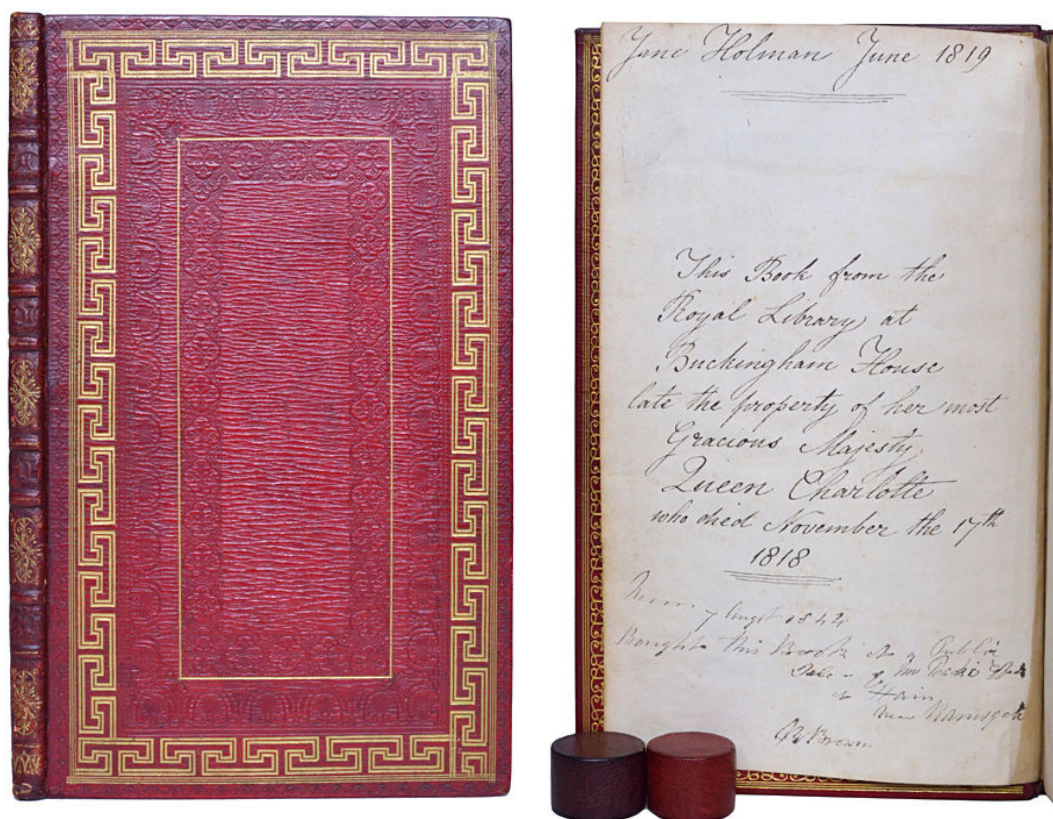 Jane Holman June 1819
This Book from the
Royal Library at
Buckingham House
late the property of her most
Gracious Majesty
Queen Charlotte
who died November the 17th
1818
Augst 1842
Bought this Book at a Public
Sale
Hain
near Ramsgate
Brown